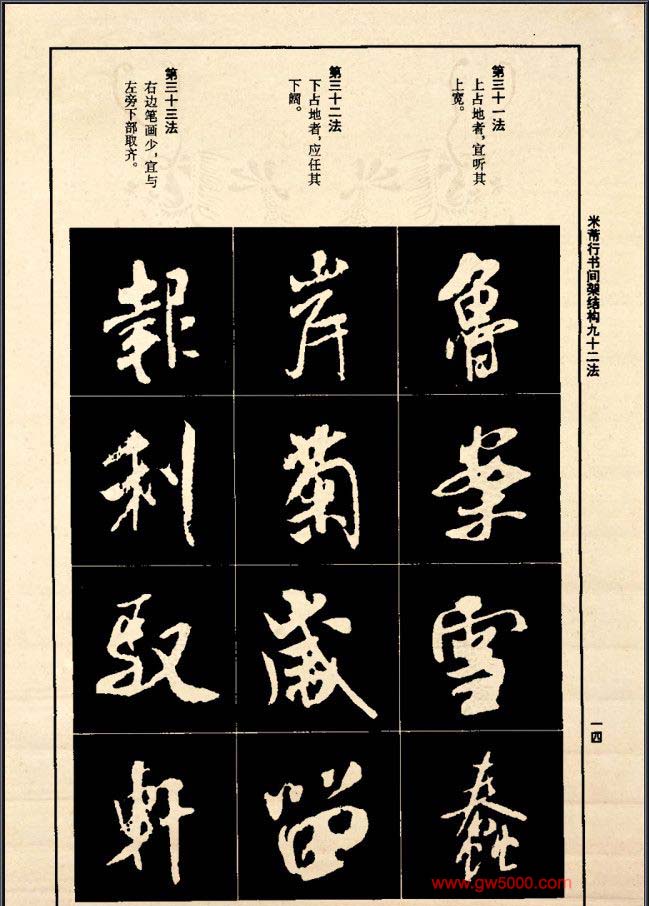 米芾行书间架结构九十二法
一四
第三十一法
上占地者，宜听其
上宽。
魯
案
雪
蠢
第三十二法
下占地者，应任其
下阔。
岸
菊
歲
留
第三十三法
右边笔画少，宜与
左旁下部取齐。
報
利
馭
軒
www.gw5000.com